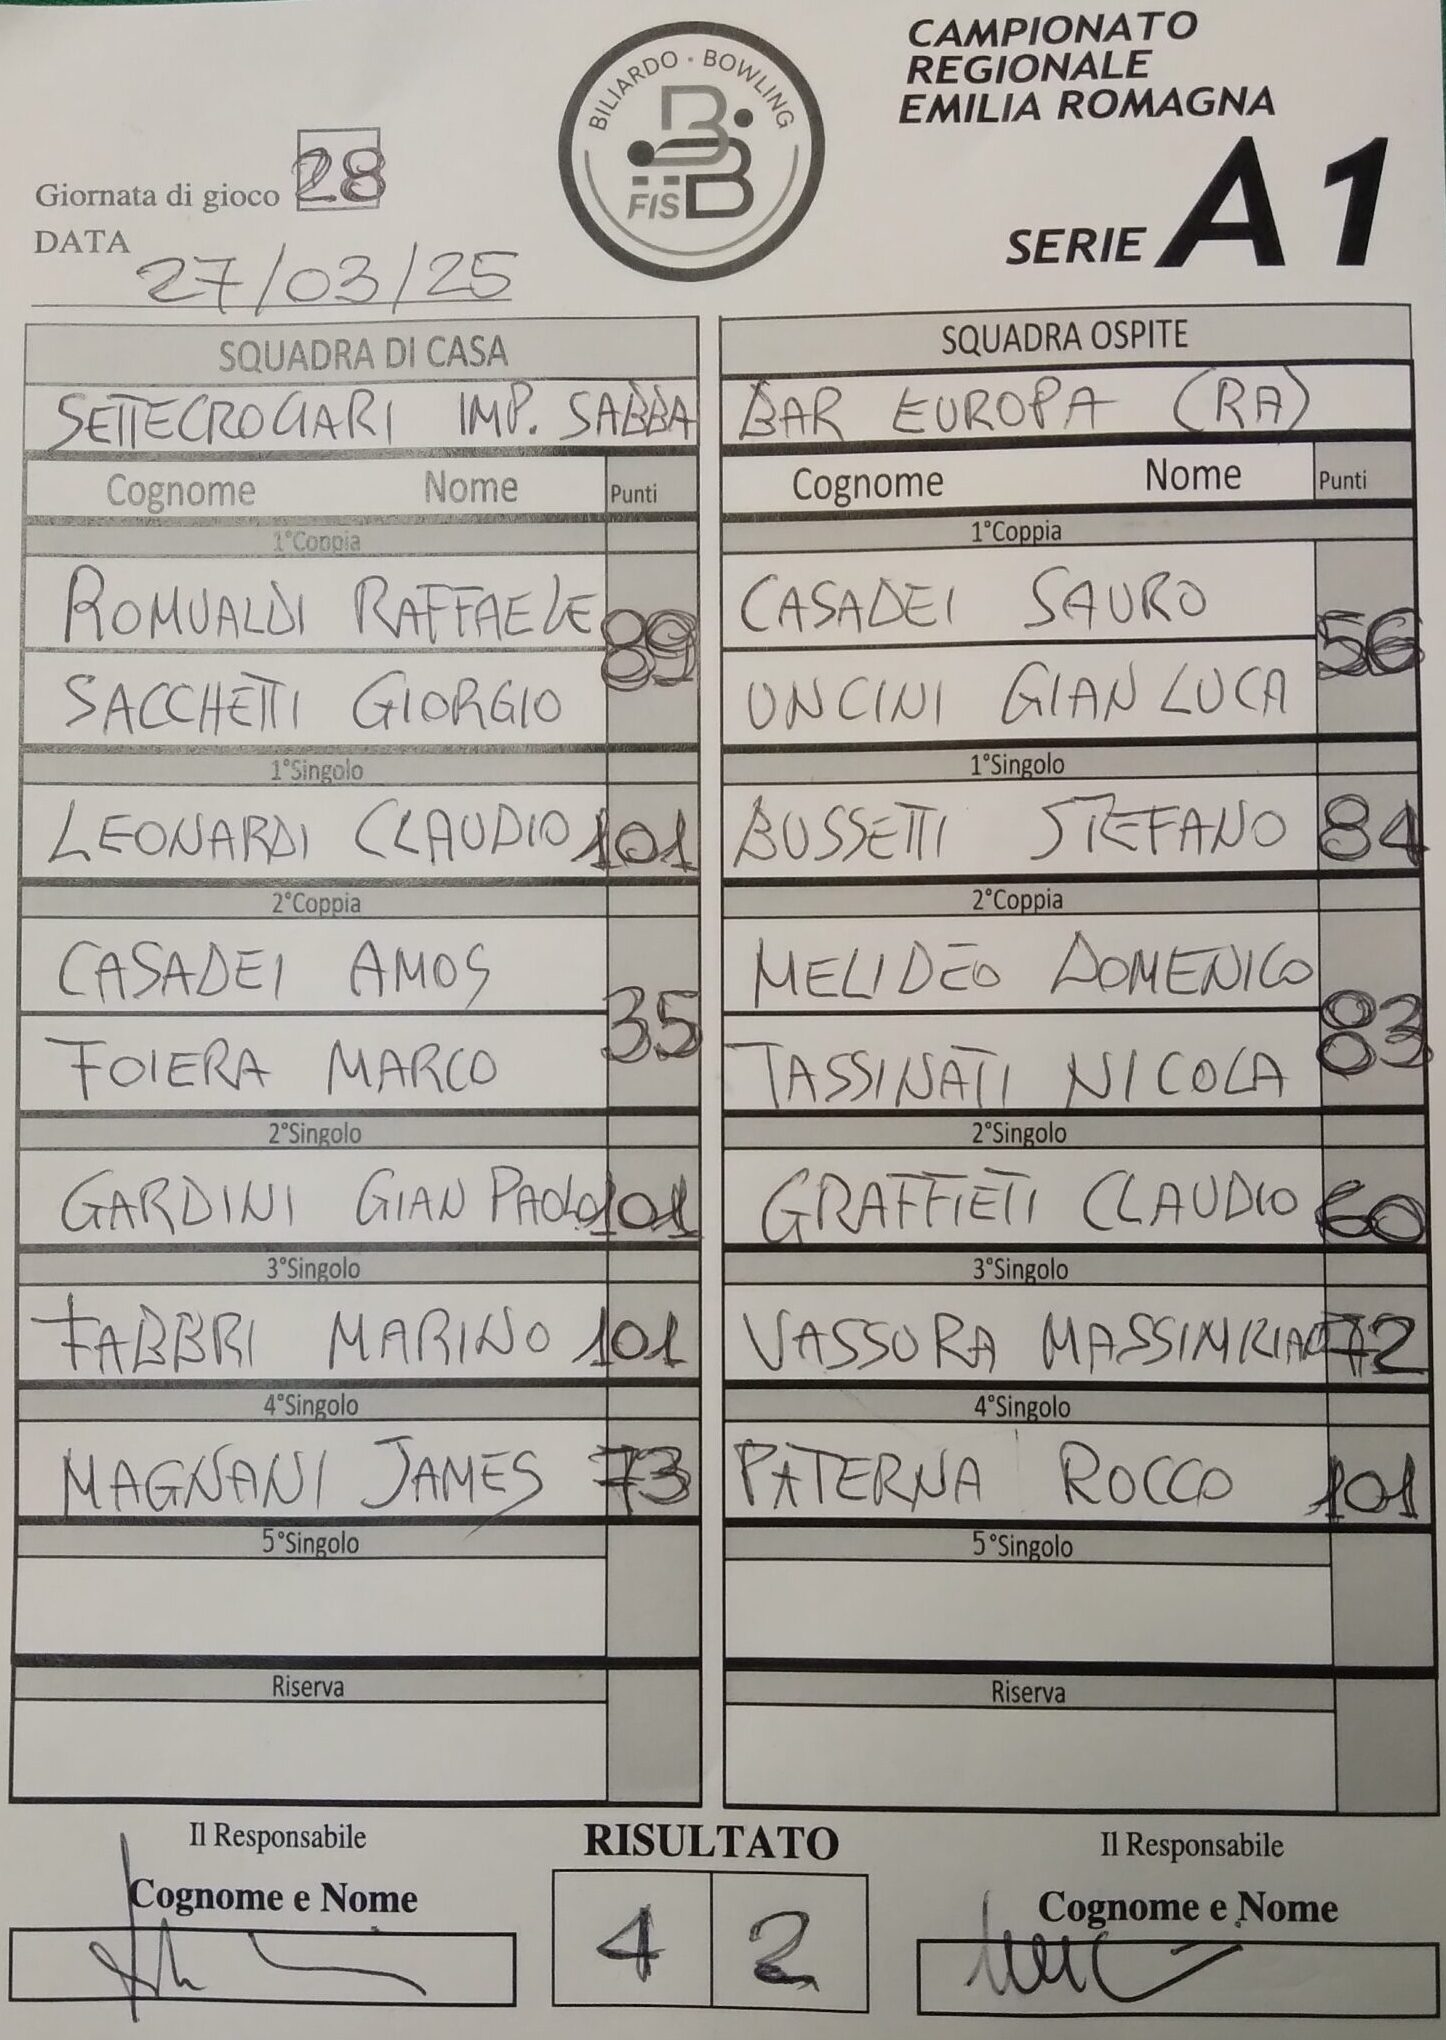 BILIARDO - BOWLING
FISBB
CAMPIONATO
REGIONALE
EMILIA ROMAGNA
SERIE A1
Giornata di gioco 28
DATA 27/03/25
SQUADRA DI CASA
SETTECROCIARI IMP. SABBA
Cognome Nome Punti
1°Coppia
ROMUALDI RAFFAELE 89
SACCHETTI GIORGIO
1°Singolo
LEONARDI CLAUDIO 101
2°Coppia
CASADEI AMOS 35
FOIERA MARCO
2°Singolo
GARDINI GIAN PAOLO 101
3°Singolo
FABBRI MARINO 101
4°Singolo
MAGNANI JAMES 73
5°Singolo
Riserva
SQUADRA OSPITE
BAR EUROPA (RA)
Cognome Nome Punti
1°Coppia
CASADEI SAURO 56
UNCINI GIAN LUCA
1°Singolo
BUSSETTI STEFANO 84
2°Coppia
MELIDEO DOMENICO 83
TASSINATI NICOLA
2°Singolo
GRAFFIETI CLAUDIO 60
3°Singolo
VASSURA 72
4°Singolo
PATERNA ROCCO 101
5°Singolo
Riserva
Il Responsabile
Cognome e Nome
RISULTATO
4 2
Il Responsabile
Cognome e Nome